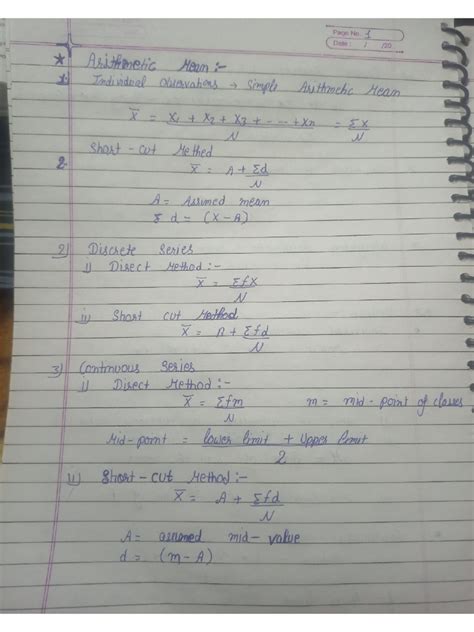 Page No. 1
Date : / /20
* Arithmetic Mean :-
1. Individual observations → Simple Arithmetic Mean
X̅ = X1 + X2 + X3 + --- + Xn = ΣX
N N
Short-cut Method
2. X̅ = A + Σd
N
A = Assumed mean
Σ d = (X-A)
2) Discrete Series
i) Direct Method :-
X̅ = ΣfX
N
ii) Short cut Method
X̅ = A + Σfd
N
3) Continuous Series
i) Direct Method :-
X̅ = Σfm m = mid-point of classes
N
Mid-point = lower limit + Upper limit
2
ii) Short-cut Method :-
X̅ = A + Σfd
N
A = assumed mid-value
d = (m-A)